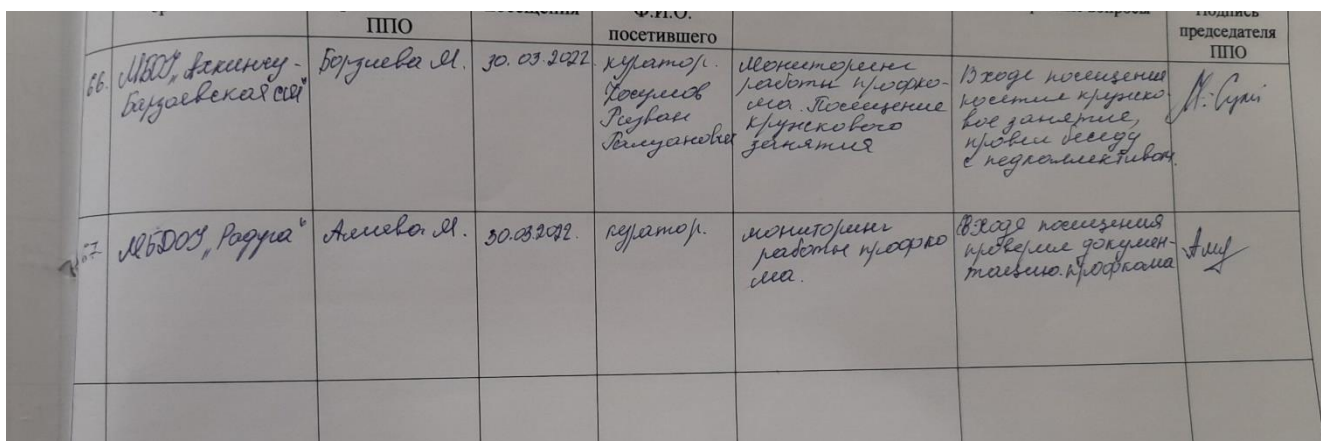 ППО
посещения
Ф.И.О.
посетившего
Подпись
председателя
ППО
66.
МБОУ "Ахкинчу-
Барзоевская сш"
Борзиева М.
30.03.2022
куратор.
Резван
мониторинг
работы профко-
ма. Посещение
кружкового
занятия
В ходе посещения
посетил кружко-
вое занятие,
провел беседу
с педколлективом.
67
МБДОУ "Радуга"
Алиева М.
30.03.2022.
куратор.
мониторинг
работы профко
ма.
В ходе посещения
проверил докумен-
тацию профкома